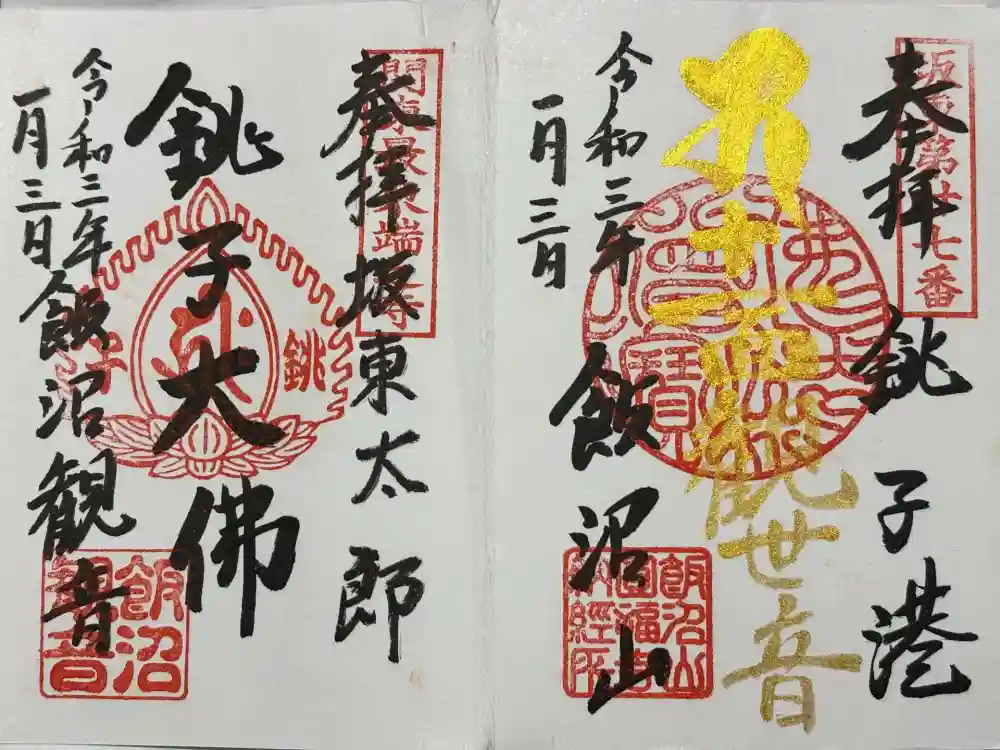 奉拝
坂東第廿七番
銚子港
十一面観世音
飯沼山
令和三年
一月三日
飯沼山
圓福寺
納経所
奉拝
関東最東端
坂東太郎
銚子大佛
銚
子
令和三年
一月三日
飯沼観音
飯沼
観音